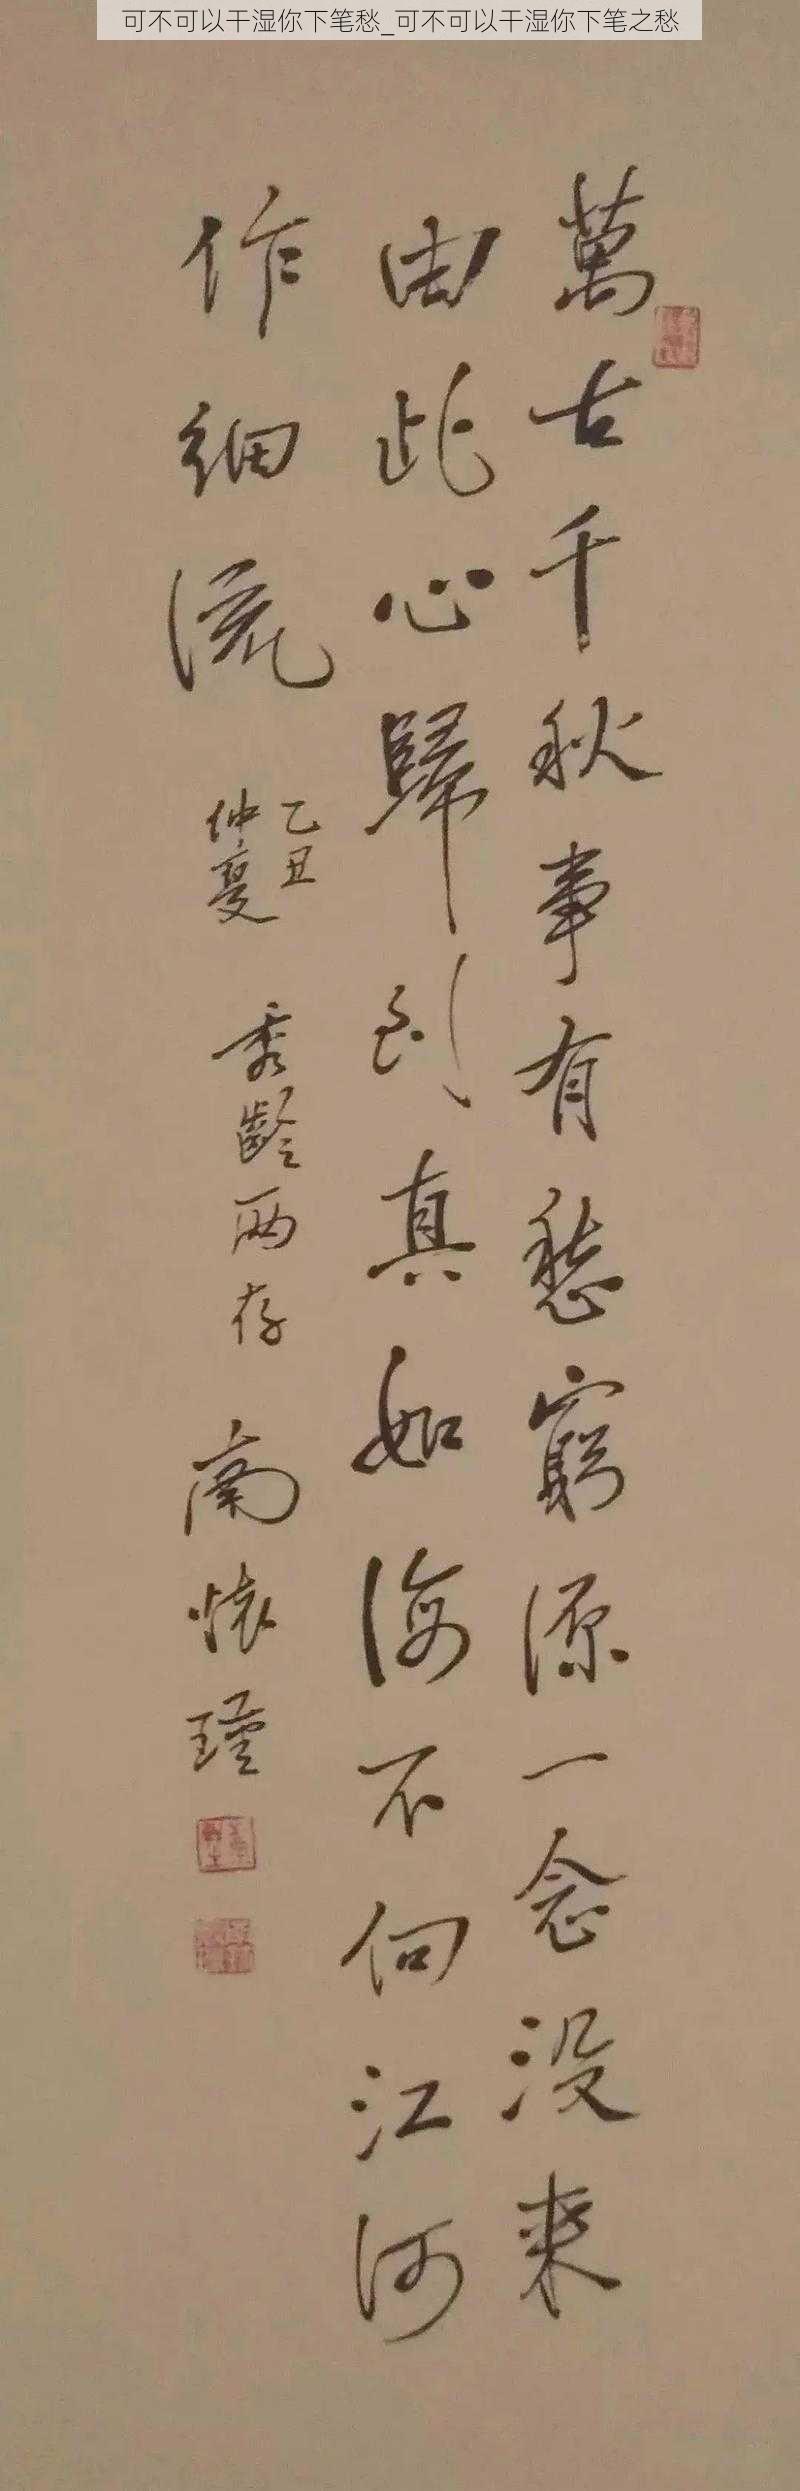 可不可以干湿你下笔愁_可不可以干湿你下笔之愁
萬古千秋事有愁窮源一念没来
由此心歸到真如海不向江河
作细流
乙丑
仲夏
秀齡两存
南懐瑾